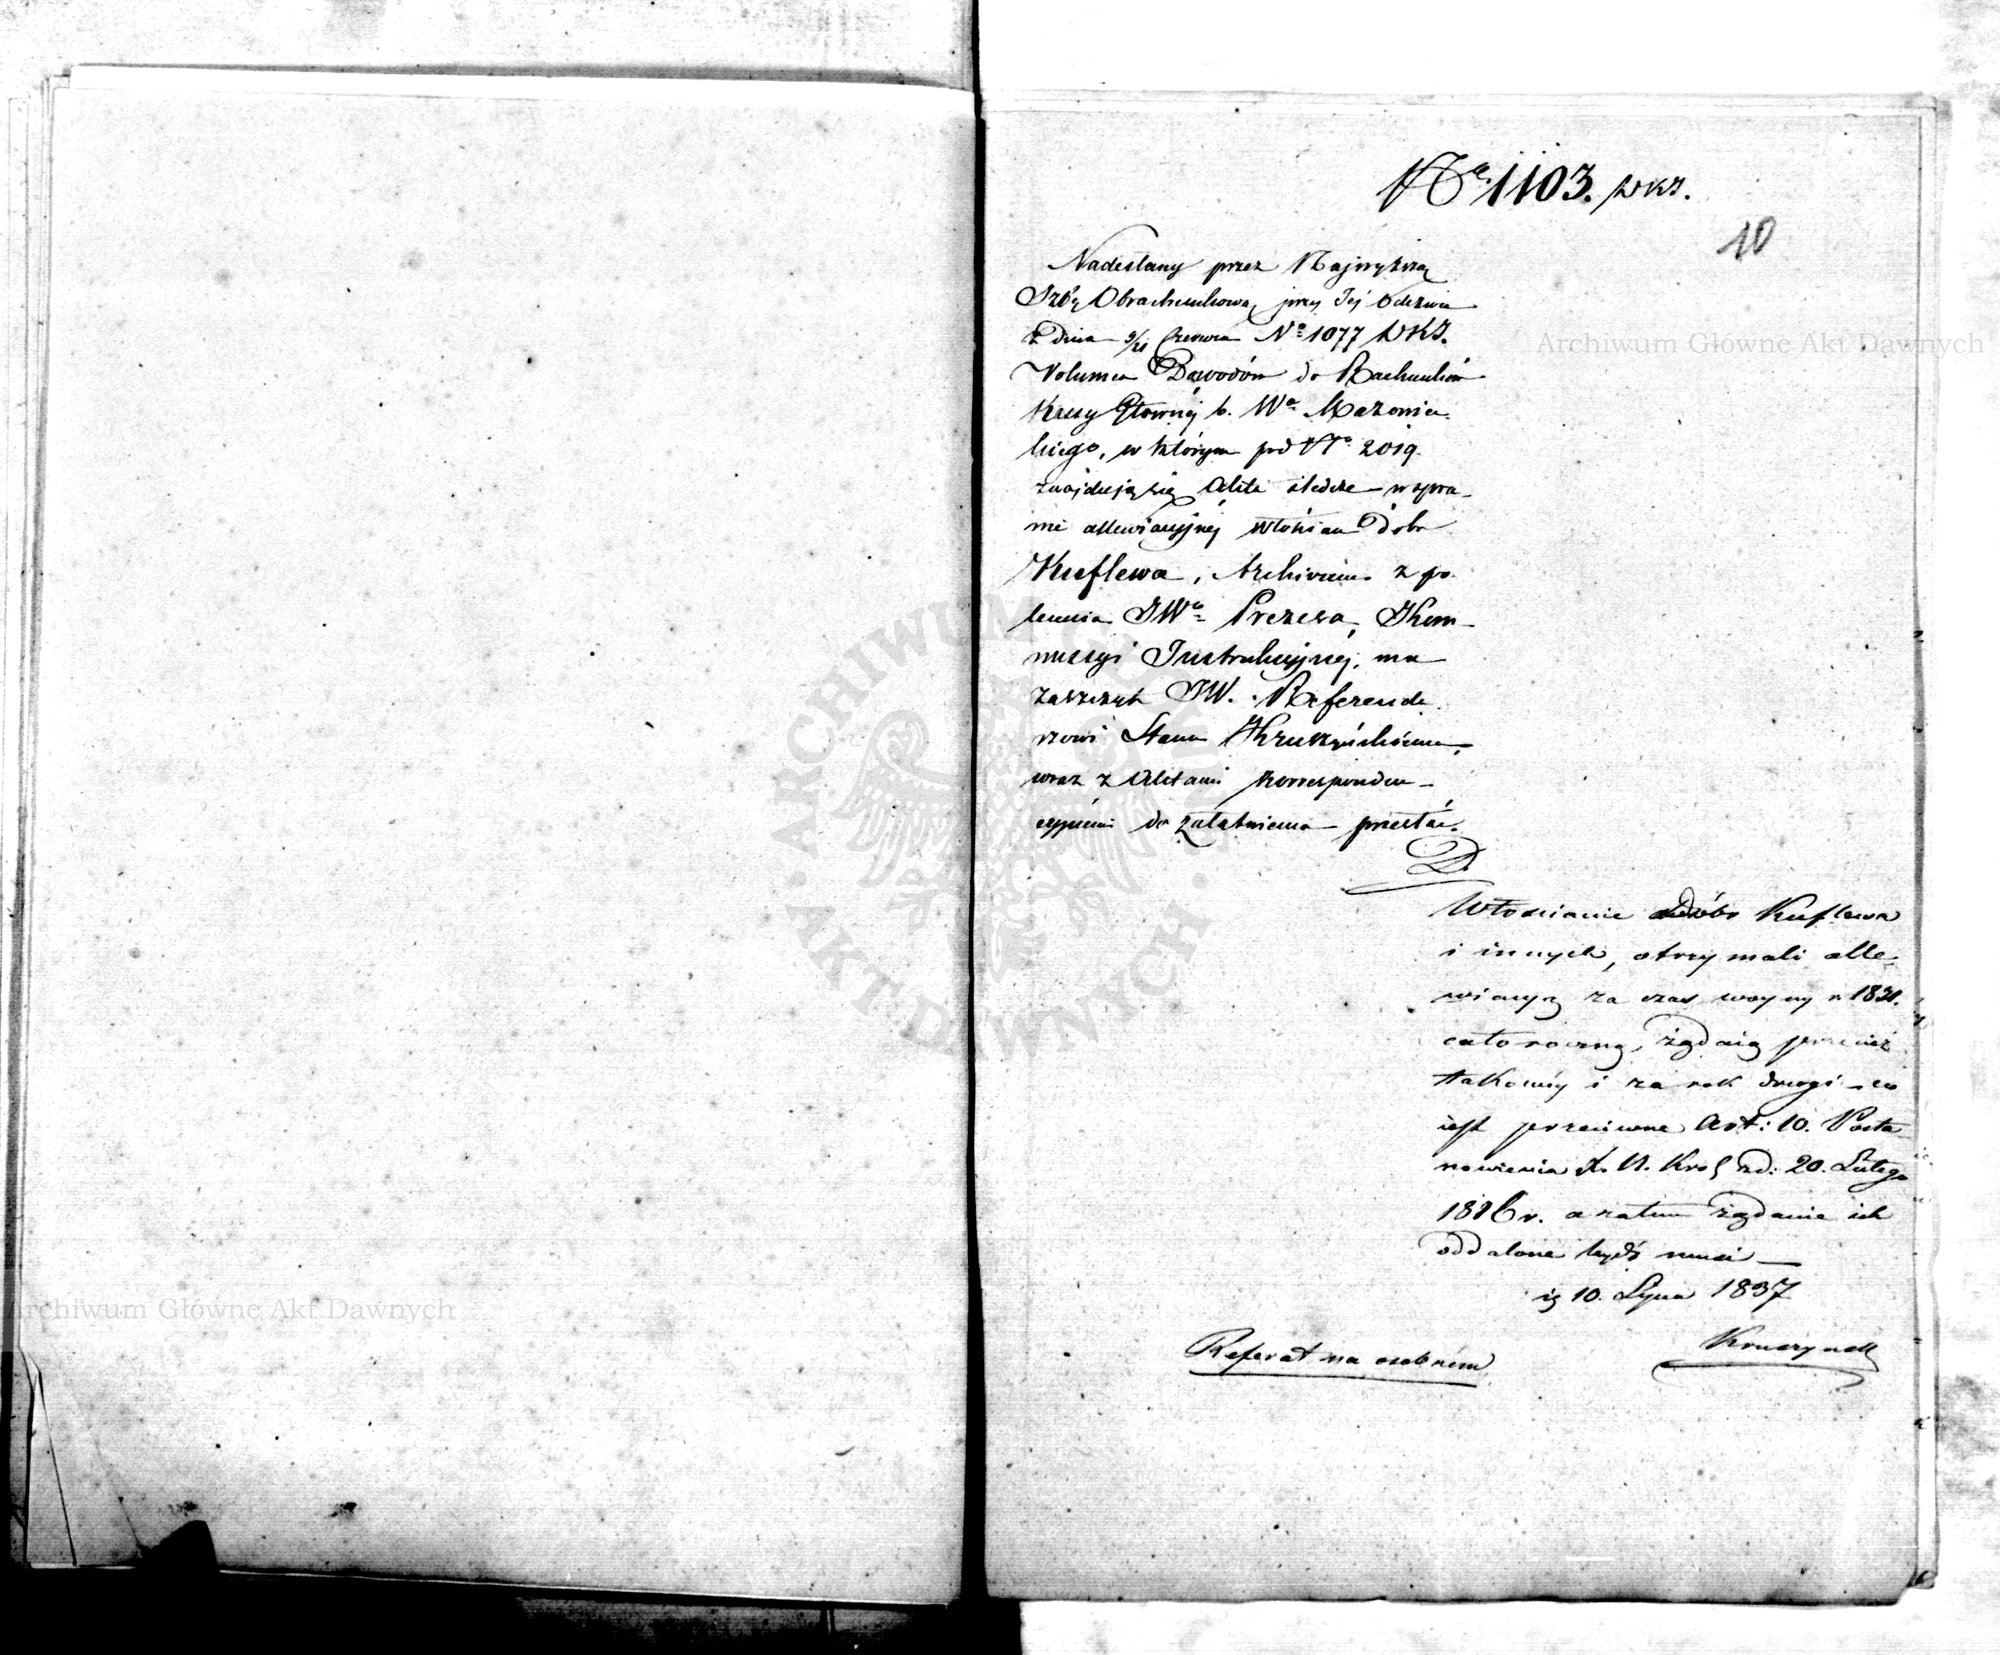 No 1103. WKJ.
10
Nadesłany przez Najwyższą
Izbę Obrachunkową, przy Jej Odezwie
z dnia 9/21 Czerwca No 1077 WKJ.
Volumen Dowodów do Rachunków
Kassy Głównej b. Wa Mazowiec
kiego, w którym pod No 2019
znajdują się Akta śledcze w spra-
wie allewiacyjnej Włościan Dóbr
Kuflewa, Archiwum z po
lecenia JWo Prezesa, Kom-
missyi Instrukcyjnej, ma
zaszczyt JW. Referenda
rzowi Stanu Kruszyńskiemu,
wraz z Aktami korresponden-
cyjnemi do załatwienia przesłać.
Włościanie dóbr Kuflewa
i innych, otrzymali alle-
wiacyą za czas woyny r. 1831.
całoroczną, żądaią przecież
takowéy i za rok drugi - co
iest przeciwne Art: 10. Posta-
nowienia X. N. Krol zd: 20. Lutego
1816 r. a zatem żądanie ich
oddalone bydź musi —
10. Lipca 1837
Kruszynski
Referat na osobném
Archiwum Główne Akt Dawnych
Archiwum Główne Akt Dawnych
ARCHIWUM GŁÓWNE · AKT DAWNYCH ·